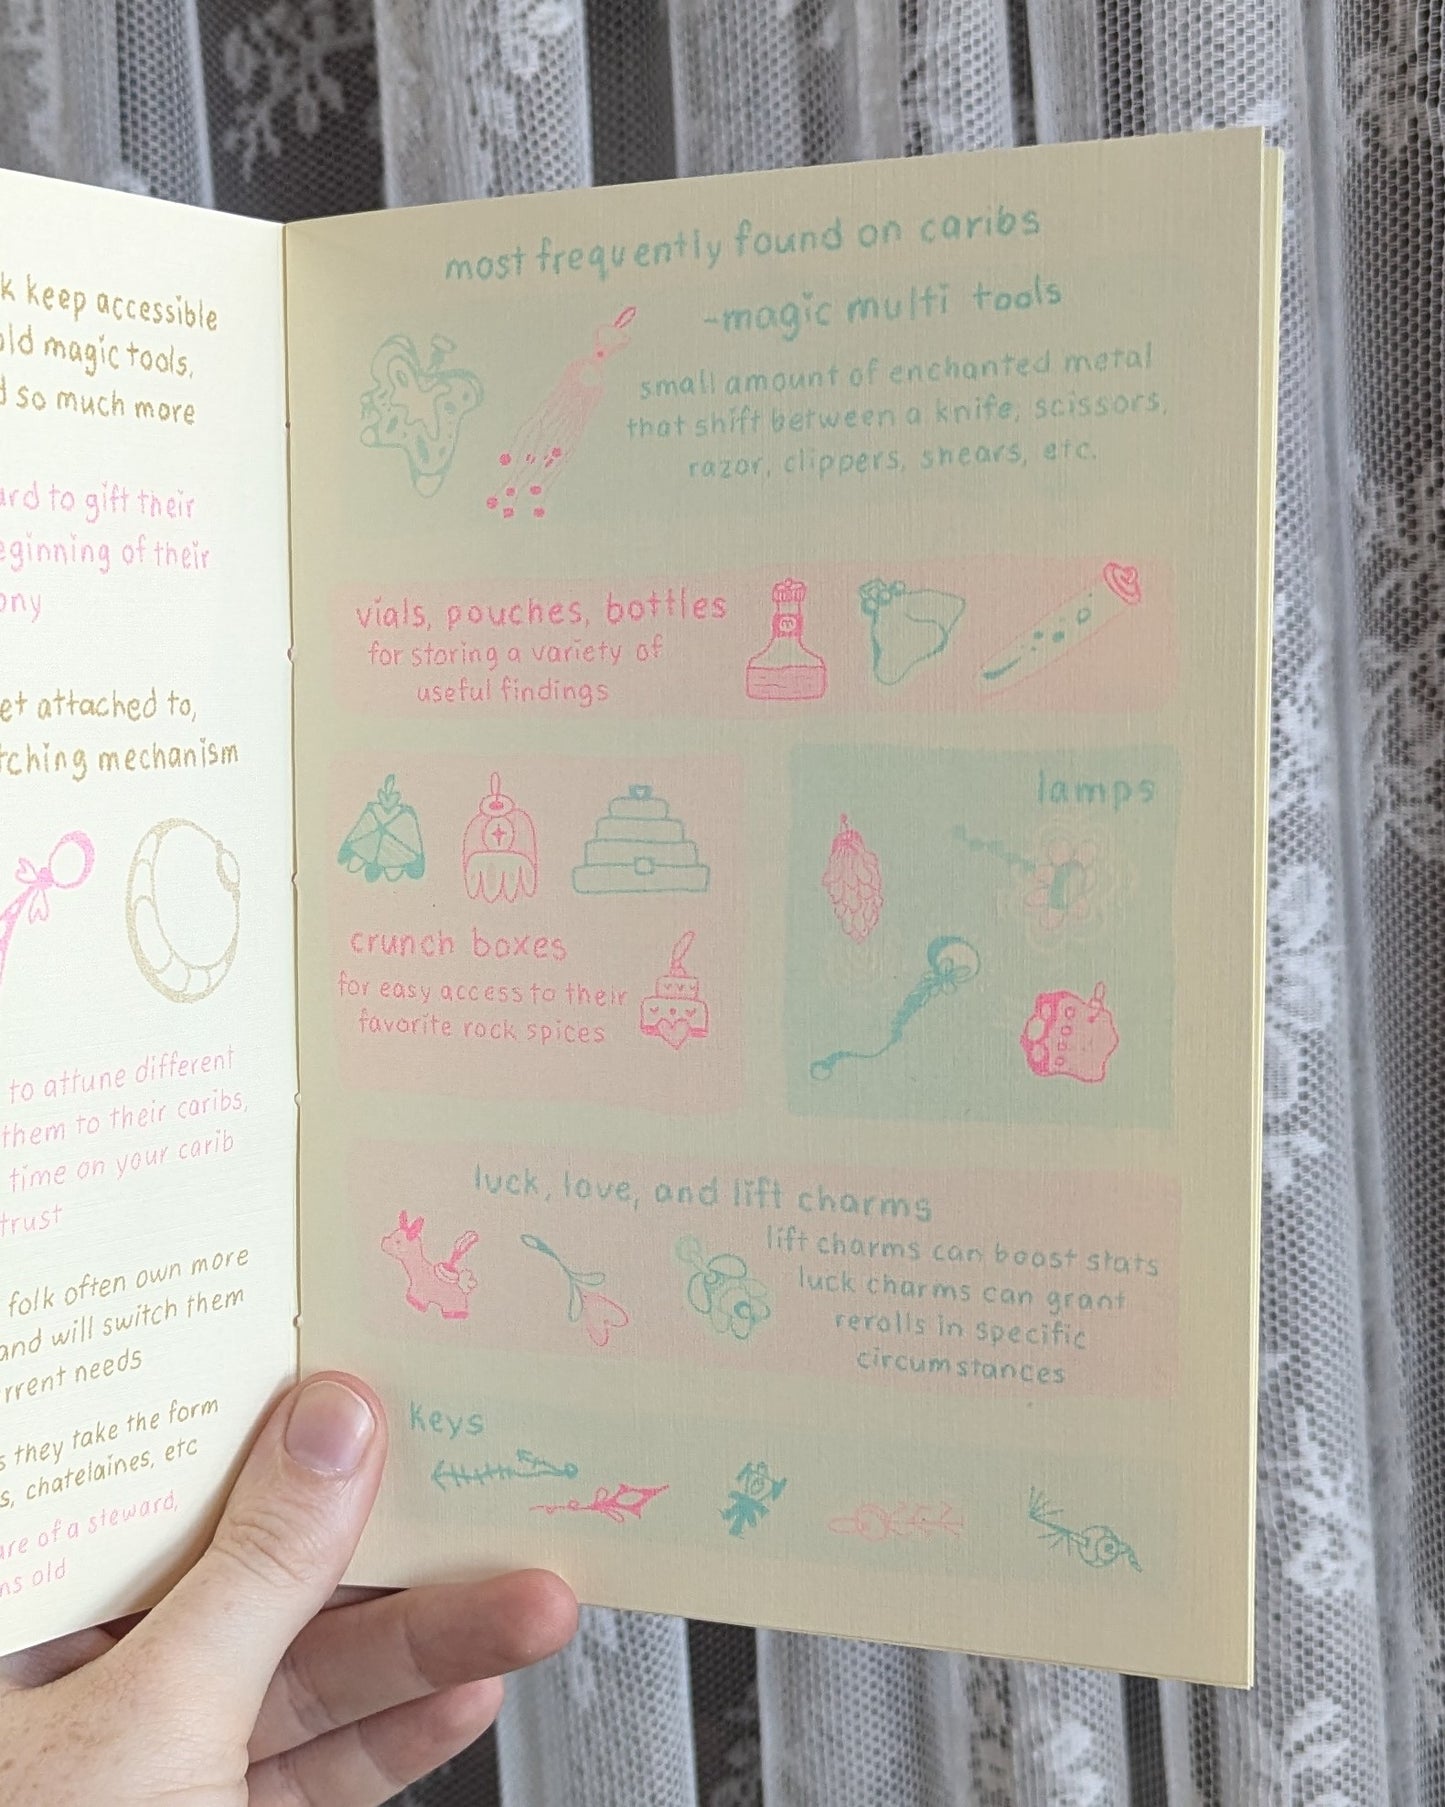 k keep accessible
old magic tools,
d so much more
ard to gift their
eginning of their
ony
et attached to,
tching mechanism
to attune different
them to their caribs,
time on your carib
trust
folk often own more
and will switch them
rrent needs
s they take the form
s, chatelaines, etc
are of a steward,
ns old
most frequently found on caribs
-magic multi tools
small amount of enchanted metal
that shift between a knife, scissors,
razor, clippers, shears, etc.
vials, pouches, bottles
for storing a variety of
useful findings
crunch boxes
for easy access to their
favorite rock spices
lamps
luck, love, and lift charms
lift charms can boost stats
luck charms can grant
rerolls in specific
circumstances
keys